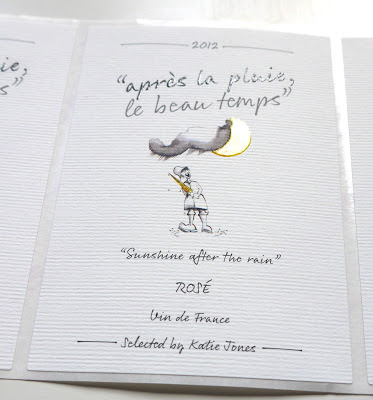 2012
“après la pluie,
le beau temps”
“Sunshine after the rain”
ROSÉ
Vin de France
Selected by Katie Jones